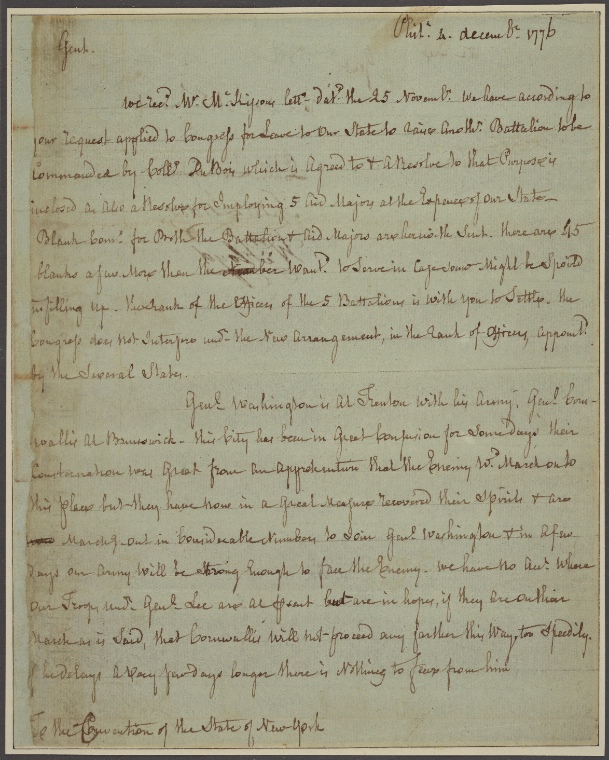 Phila. 4. decembr. 1776
Gent.
we recd. Mr. McKissons lettr. Datd. the 25 Novembr. we have according to
your request applied to Congress for Leave to Our State to raise Anothr. Battalion to be
Commanded by Collo. DuBois which is Agreed to & a Resolve to that Purpose is
inclosed as also a Resolve for Imploying 5 Aid Majors at the Expence of Our State –
Blank Coms. for Both the Battalion & Aid Majors are herewith Sent. there are 45
blanks a few More than the Number Wantd. to Serve in Case some Might be Spoild
in filling up. the rank of the Officers of the 5 Battalions is with you to Settle. the
Congress does not Interfere undr. the New Arrangement, in the rank of Officers, appointd.
by the Several States.
Genl. Washington is at Trenton with his Army. Genl. Corn-
wallis at Brunswick. this City has been in Great Confusion for Some days their
Consternation was Great from an Apprehention that the Enemy wd. March on to
this place but they have now in a Great Measure recovered their Spirits & are
Marchg. out in Considerable Numbers to Join Genl. Washington & in a few
days our Army will be Strong Enough to face the Enemy. we have no Acct. where
Our Troops undr. Genl. Lee are at Psent but are in hopes, if they are on their
March as is Said, that Cornwallis will not proceed any farther this Way, too Speedily.
if he delays a very few days longer there is Nothing to fear from him
To the Convention of the State of New York